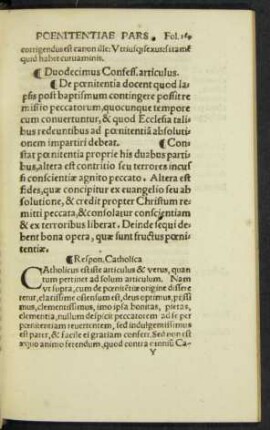 POENITENTIAE PARS. Fol.
corrigendus est canon ille: Vtriusq; sexus: si tamē
quid habet
¶ Duodecimus Confess. articulus.
¶ De pœnitentia docent quod la-
psis post baptismum contingere possit re
missio peccatorum, quocunque tempore
cum conuertuntur, & quod Ecclesia tali
bus redeuntibus ad pœnitentiā absoluti
onem impartiri debeat. ¶ Con
stat pœnitentia proprie his duabus parti
bus, altera est contritio seu terrores incus
si conscientiæ agnito peccato. Altera est
fides, quæ concipitur ex euangelio seu ab
solutione, & credit propter Christum re
mitti peccata, & consolatur conscientiam
& ex terroribus liberat. Deinde sequi de
bent bona opera, quæ sunt fructus pœni
tentiæ.
¶ Respon. Catholica
Catholicus est iste articulus & verus, quan
tum pertinet ad solum articulum. Nam
vt supra, cum de pœnitētiæ origine dissere
retur, clarissime ostensum est, deus optimus, piissi
mus, clementissimus, imo ipsa bonitas, pietas,
clementia, nullum despicit peccatorem ad se per
pœnitentiam reuertentem, sed indulgentissimus
est pater, & facile ei gratiam confert. Sed non est
æquo animo ferendum, quod contra Ca-
Y